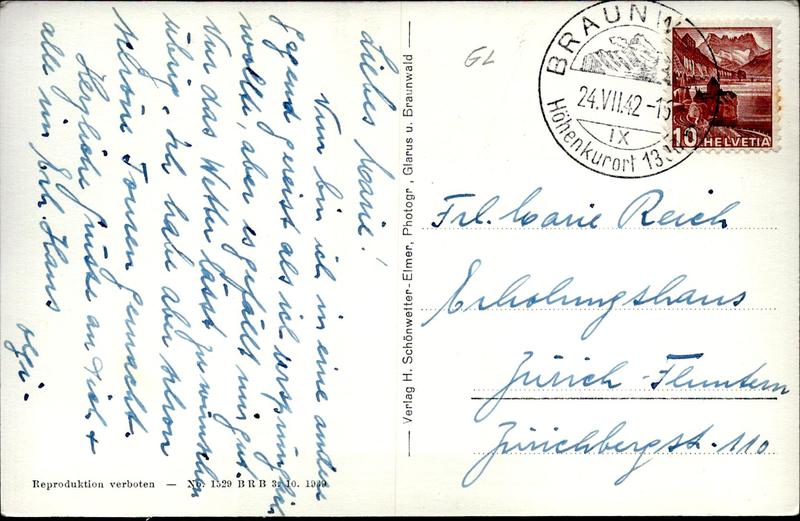 Liebes Marie!
Nun bin ich in eine andere
Gegend gereist als ich ursprünglich
wollte, aber es gefällt mir gut.
Nur das Wetter lässt zu wünschen
übrig. Ich habe aber schon
schöne Touren gemacht.
Herzliche Grüsse an Dich &
alle im Erh. Haus
GL
BRAUNW
24.VII.42-1
IX
Höhenkurort 13
10 HELVETIA
Frl. Marie Reich
Erholungshaus
Zürich-Fluntern
Zürichbergstr. 110
Verlag H. Schönwetter-Elmer, Photogr., Glarus u. Braunwald
Reproduktion verboten — No. 1529 BRB 3. 10. 1939